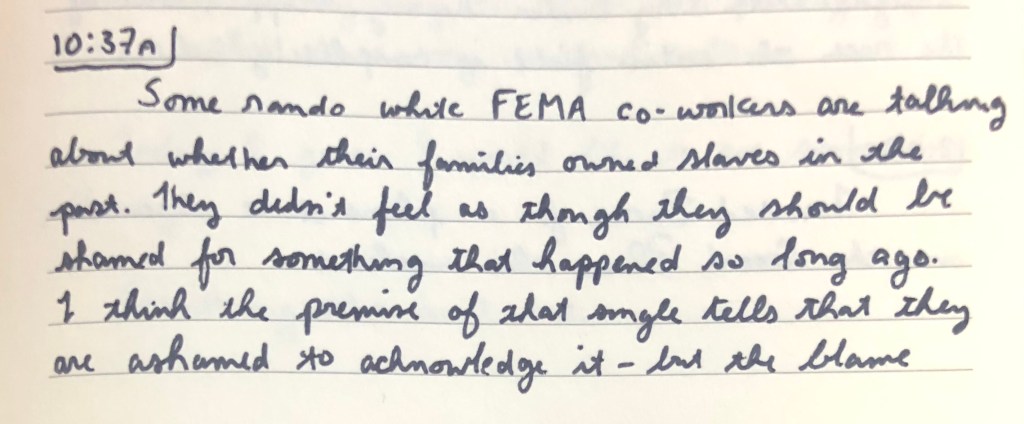 10:37A
Some rando while FEMA co-workers are talking
about whether their families owned slaves in the
past. They didn't feel as though they should be
shamed for something that happened so long ago.
I think the premise of that angle tells that they
are ashamed to acknowledge it - but the blame